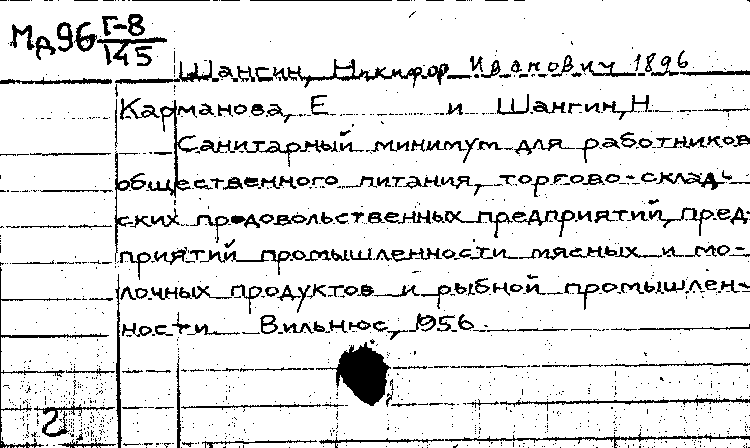 Мд96 Г-8
145
Шангин, Никифор Иванович 1896
Карманова, Е и Шангин, Н
Санитарный минимум для работников
общественного питания, торгово-склад-
ских продовольственных предприятий, пред-
приятий промышленности мясных и мо-
лочных продуктов и рыбной промышлен-
ности. Вильнюс, 1956.
2